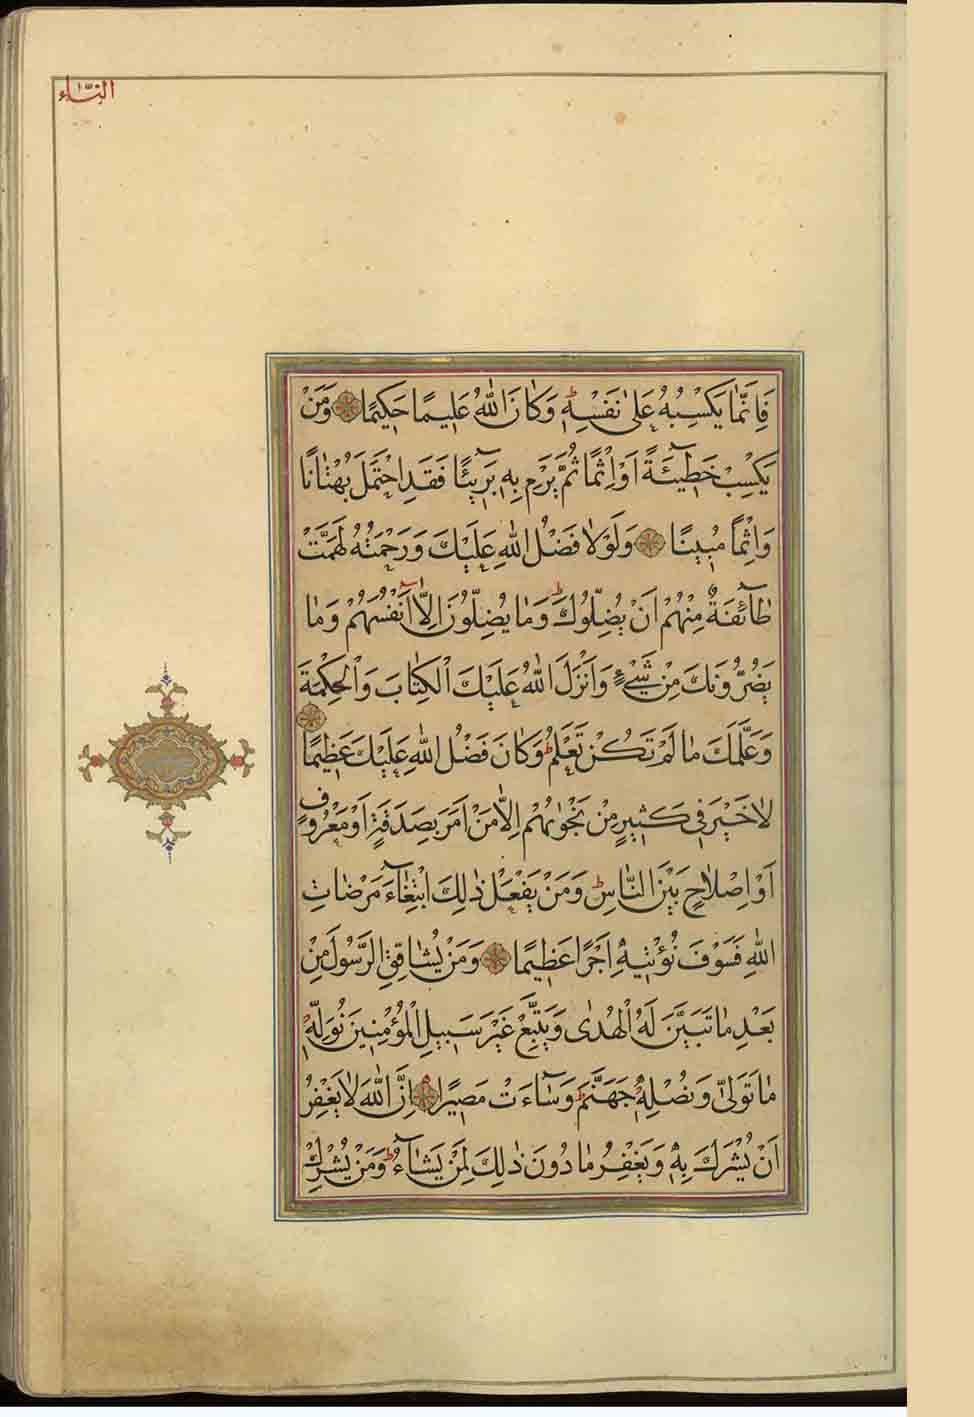 النساء
فَاِنَّمَا يَكْسِبُهُ عَلٰى نَفْسِهٖ وَكَانَ اللّٰهُ عَلِيمًا حَكِيمًا وَمَنْ
يَكْسِبْ خَطِٓيئَةً اَوْ اِثْمًا ثُمَّ يَرْمِ بِهٖ بَرِٓيئًا فَقَدِ احْتَمَلَ بُهْتَانًا
وَاِثْمًا مُبِينًا وَلَوْلَا فَضْلُ اللّٰهِ عَلَيْكَ وَرَحْمَتُهُ لَهَمَّتْ
طَٓائِفَةٌ مِنْهُمْ اَنْ يُضِلُّوكَ وَمَا يُضِلُّونَ اِلَّٓا اَنْفُسَهُمْ وَمَا
يَضُرُّونَكَ مِنْ شَيْءٍ وَاَنْزَلَ اللّٰهُ عَلَيْكَ الْكِتَابَ وَالْحِكْمَةَ
وَعَلَّمَكَ مَا لَمْ تَكُنْ تَعْلَمُ وَكَانَ فَضْلُ اللّٰهِ عَلَيْكَ عَظِيمًا
لَا خَيْرَ فِي كَثِيرٍ مِنْ نَجْوٰيهُمْ اِلَّا مَنْ اَمَرَ بِصَدَقَةٍ اَوْ مَعْرُوفٍ
اَوْ اِصْلَاحٍ بَيْنَ النَّاسِ وَمَنْ يَفْعَلْ ذٰلِكَ ابْتِغَٓاءَ مَرْضَاتِ
اللّٰهِ فَسَوْفَ نُؤْتِيهِ اَجْرًا عَظِيمًا وَمَنْ يُشَاقِقِ الرَّسُولَ مِنْ
بَعْدِ مَا تَبَيَّنَ لَهُ الْهُدٰى وَيَتَّبِعْ غَيْرَ سَبِيلِ الْمُؤْمِنِينَ نُوَلِّهٖ
مَا تَوَلّٰى وَنُصْلِهٖ جَهَنَّمَ وَسَٓاءَتْ مَصِيرًا اِنَّ اللّٰهَ لَا يَغْفِرُ
اَنْ يُشْرَكَ بِهٖ وَيَغْفِرُ مَا دُونَ ذٰلِكَ لِمَنْ يَشَٓاءُ وَمَنْ يُشْرِكْ